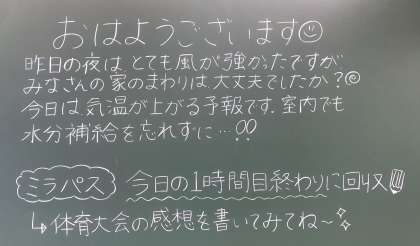 おはようございます
昨日の夜は、とても風が強かったですが
みなさんの家のまわりは、大丈夫でしたか？
今日は、気温が上がる予報です。室内でも
水分補給を忘れずに…??
ミラパス 今日の1時間目終わりに回収
↳体育大会の感想を書いてみてね〜